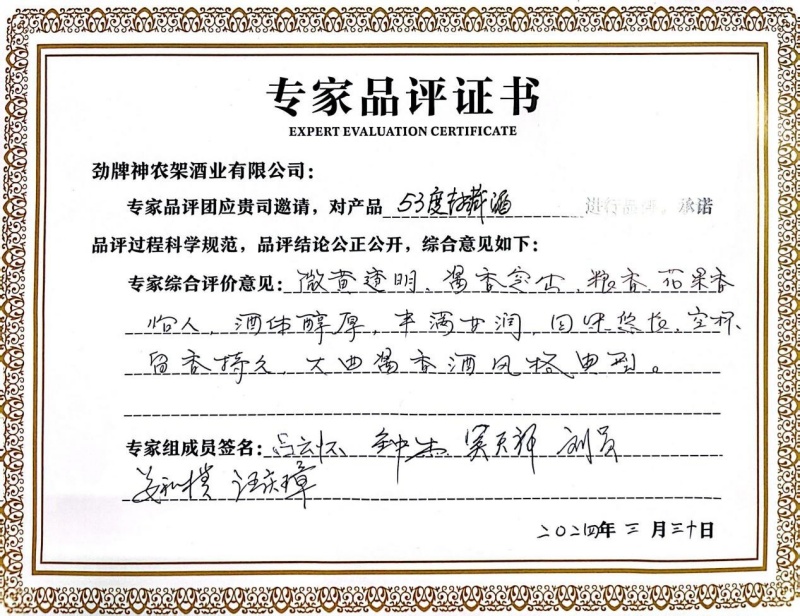 专家品评证书
EXPERT EVALUATION CERTIFICATE
劲牌神农架酒业有限公司：
专家品评团应贵司邀请，对产品 53度 酒 进行品评，承诺
品评过程科学规范，品评结论公正公开，综合意见如下：
专家综合评价意见：微黄透明、酱香突出、粮香、花果香
怡人，酒体醇厚，丰满甘润，回味悠长，空杯
留香持久，大曲酱香酒风格典型。
专家组成员签名：吕云怀 钟杰 吴天祥 刘员
汪庆璋
二〇二四年 三 月 三十日